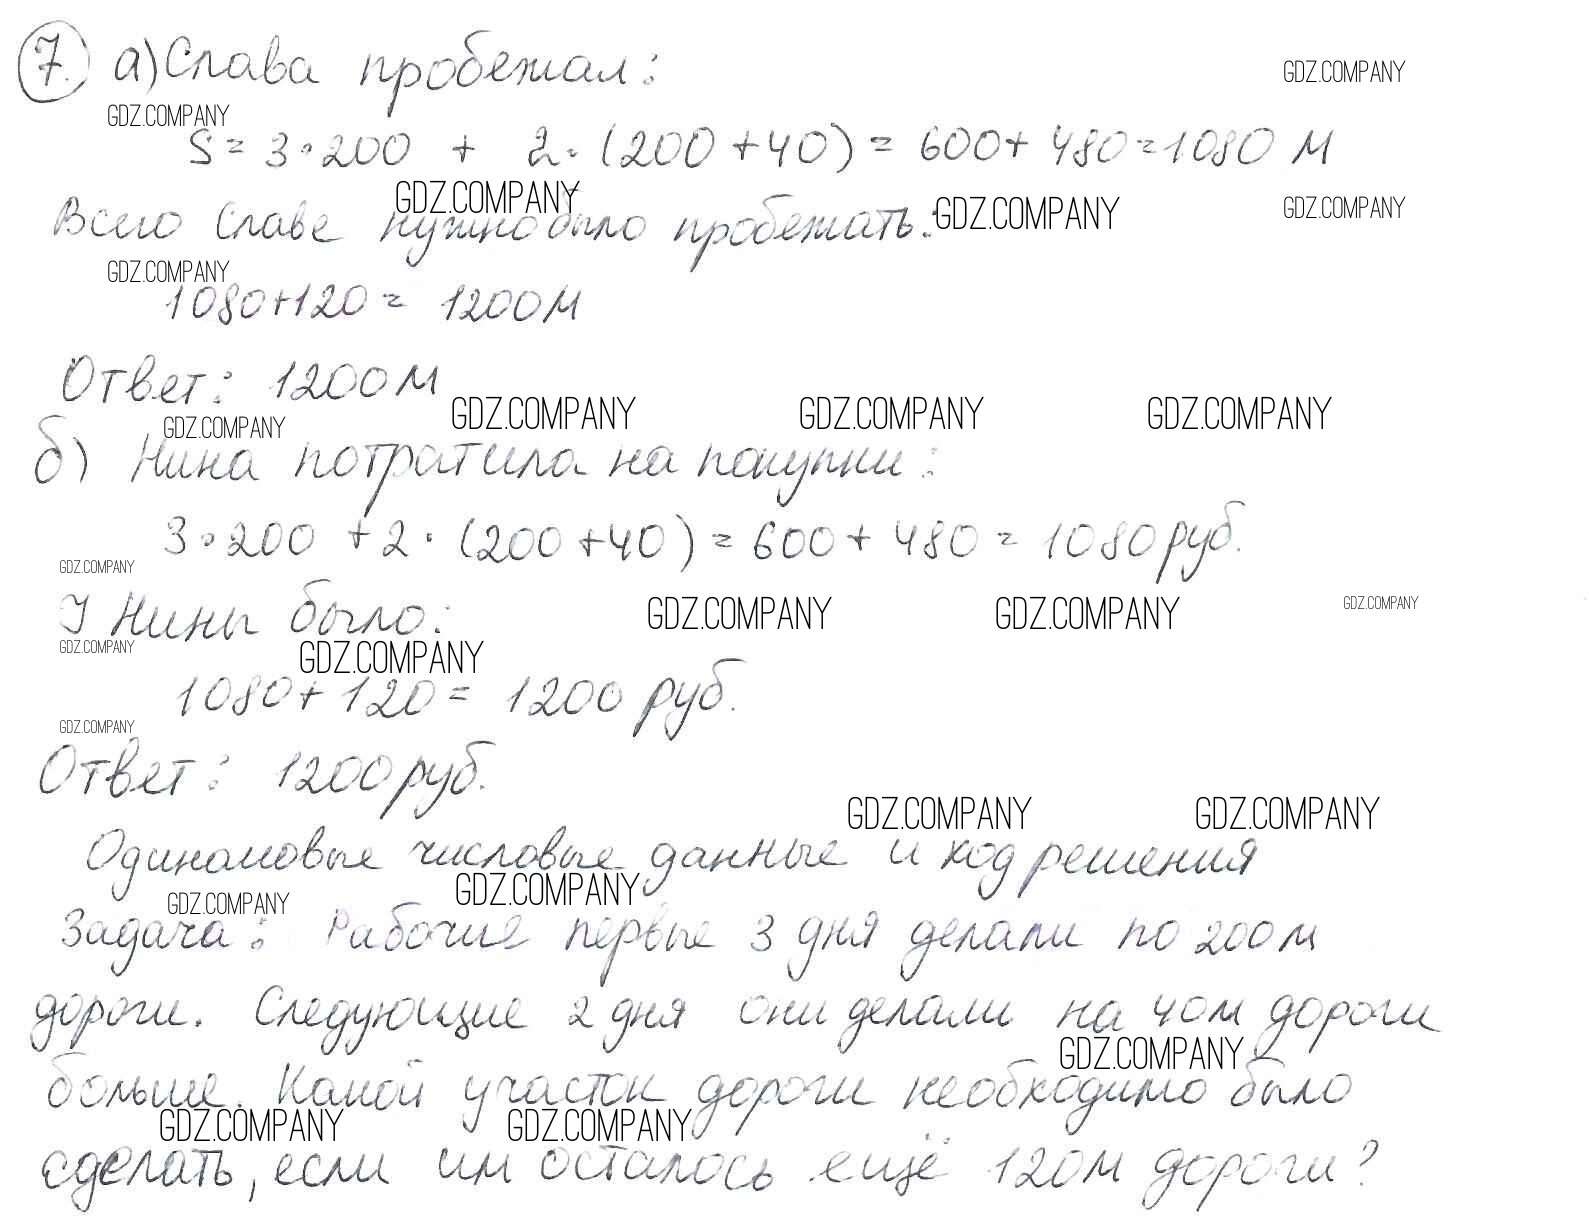 7. а) Слава пробежал:
GDZ.COMPANY
GDZ.COMPANY
S = 3·200 + 2·(200+40) = 600+ 480=1080 м
GDZ.COMPANY GDZ.COMPANY GDZ.COMPANY
Всего Славе нужно было пробежать:
GDZ.COMPANY
1080+120 = 1200м
Ответ: 1200м
GDZ.COMPANY GDZ.COMPANY GDZ.COMPANY GDZ.COMPANY
б) Нина потратила на покупки:
3·200 +2·(200+40) = 600+ 480 = 1080 руб.
GDZ.COMPANY
У Нины было:
GDZ.COMPANY GDZ.COMPANY GDZ.COMPANY
GDZ.COMPANY GDZ.COMPANY
1080+120 = 1200 руб.
GDZ.COMPANY
Ответ: 1200 руб.
GDZ.COMPANY GDZ.COMPANY
Одинаковые числовые данные и ход решения
GDZ.COMPANY GDZ.COMPANY
Задача: Рабочие первые 3 дня делали по 200м
дороги. Следующие 2 дня они делали на 40м дороги
GDZ.COMPANY
больше. Какой участок дороги необходимо было
GDZ.COMPANY GDZ.COMPANY
сделать, если им осталось ещё 120м дороги?